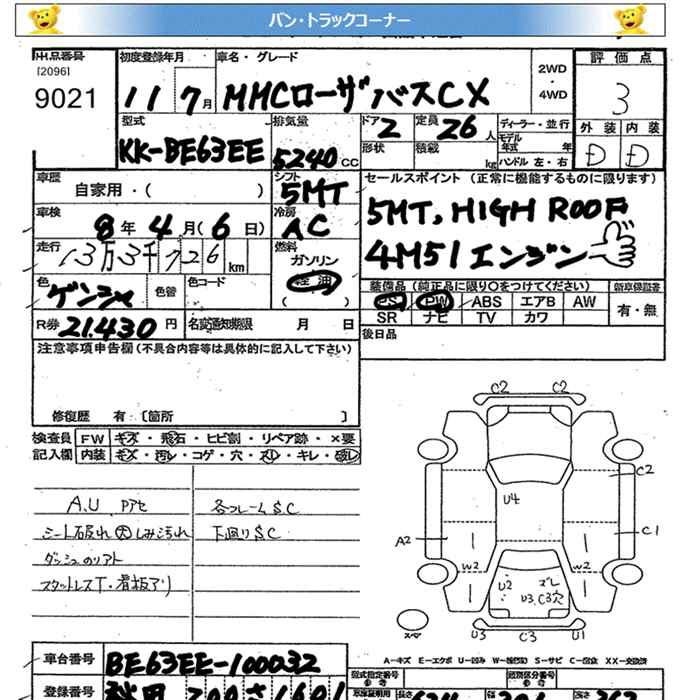 バン・トラックコーナー
出品番号 初度登録年月 車名・グレード 評価点
[2096]
9021 11 7月 MMCローザバスCX 2WD・4WD 3
型式 排気量 ドア 定員 ディーラー・並行 外装 内装
KK-BE63EE 5240cc 2 26人 モデル年式 年 D D
形状 積載 kg ハンドル 左・右
車歴 シフト セールスポイント (正常に機能するものに限ります)
自家用・( ) 5MT 5MT, HIGH ROOF
車検 8年4月(6日) 冷房 AC 4M51エンジン
走行 13万3千726km 燃料 ガソリン 軽油 ( )
装備品(純正品に限り○をつけてください) 新車保証書
色 ゲンシャ 色替 色コード PS PW ABS エアB AW 有・無
R券 21.430円 名変通知期限 月 日 SR ナビ TV カワ
後日品
注意事項申告欄(不具合内容等は具体的に記入して下さい)
修復歴 有 [箇所 ]
検査員 FW キズ・飛石・ヒビ割・リペア跡・×要
記入欄 内装 キズ・汚レ・コゲ・穴・スレ・キレ・破レ
A.U アセ 各フレームS.C
シート破れ大 しみ汚れ 下廻りS.C
スタットレスT・看板アリ
C2 C2
C2
U4
A2 C1
W2 W2
U2 ズレ
U3.C3穴
U3 C3 U1
A-キズ E-エクボ U-凹み S-サビ C-腐食 XX-交換済
車台番号 BE63EE-100032
登録番号
型式指定番号 類別区分番号